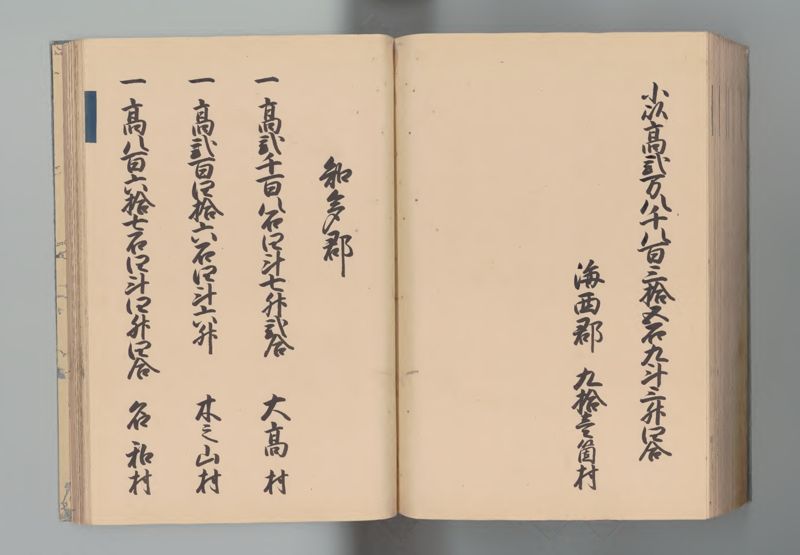 小以高弐万八千八百三拾五石九斗三升四合
海西郡 九拾壱箇村
知多郡
一 高弐千百八石四斗七升弐合 大高村
一 高弐百四拾六石四斗六升 木之山村
一 高八百六拾七石四斗四升四合 名和村